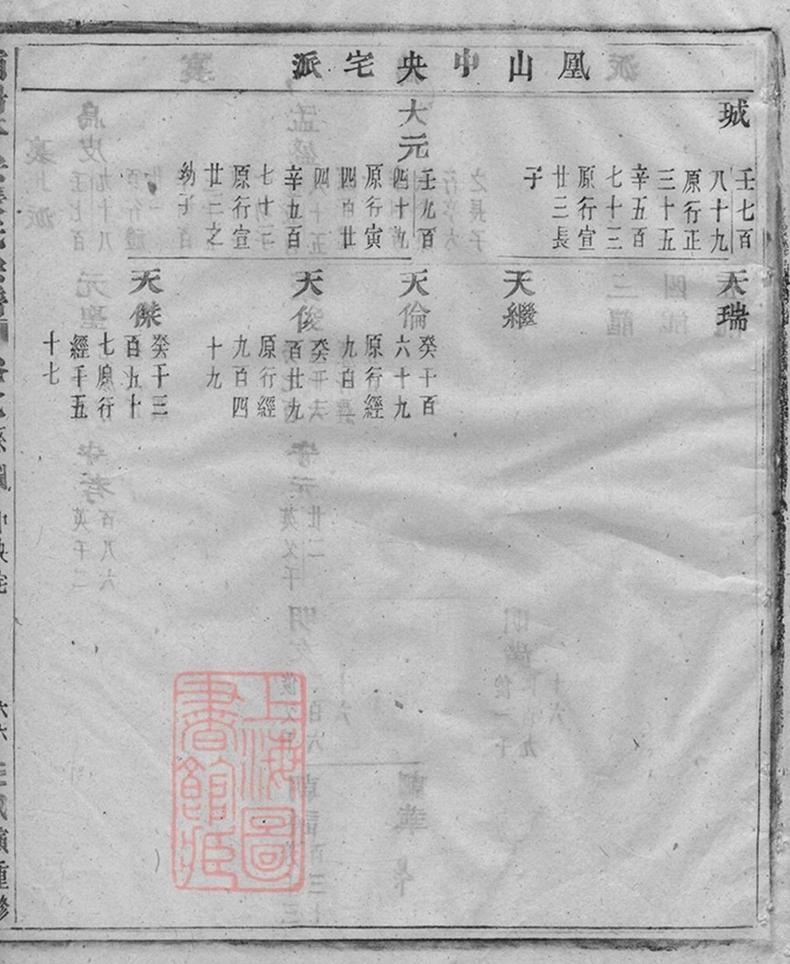 凰山中央宅派
珹
壬七百
八十九
原行正
三十五
辛五百
七十三
原行宣
廿三長
子
大元
壬九百
四十九
原行寅
四百廿
四
辛五百
七十三
原行宣
廿三之
幼子
天瑞
天繼
天倫
癸千百
六十九
原行經
九百
天俊
癸千
百廿九
原行經
九百四
十九
天傑
癸千三
百五十
七原行
經千五
十七
上海圖
書館藏